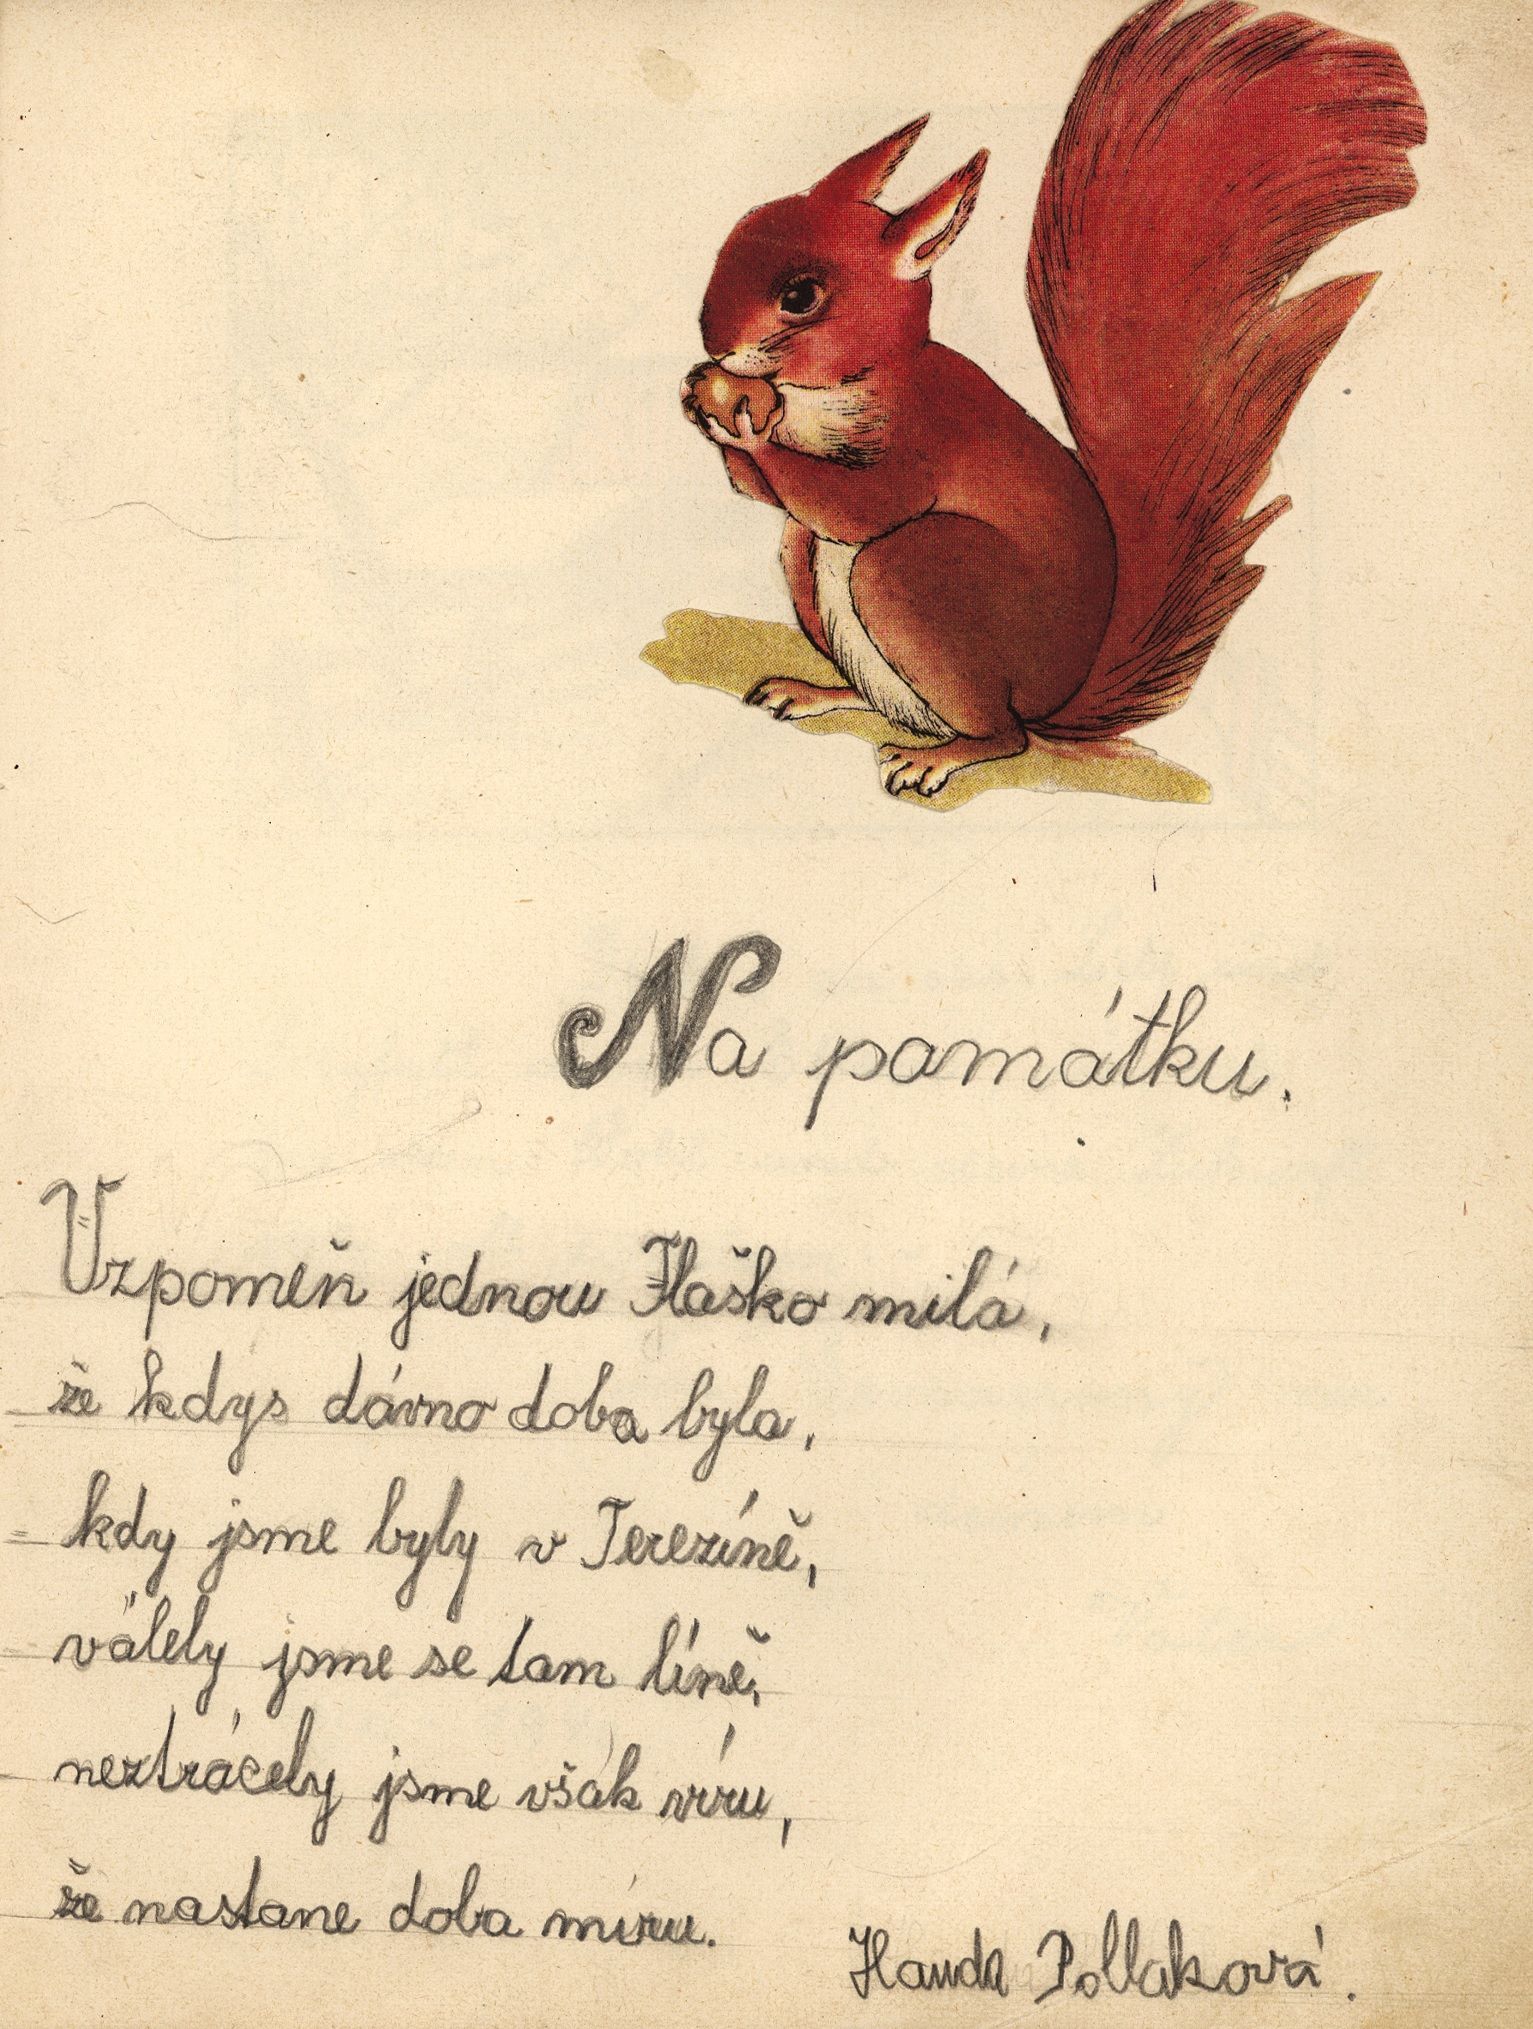 Na památku.
Vzpomeň jednou Flaško milá,
že kdys dávno doba byla,
kdy jsme byly v Terezíně,
válely jsme se tam líně,
neztrácely jsme však víru,
že nastane doba míru.
Handa Pollaková.